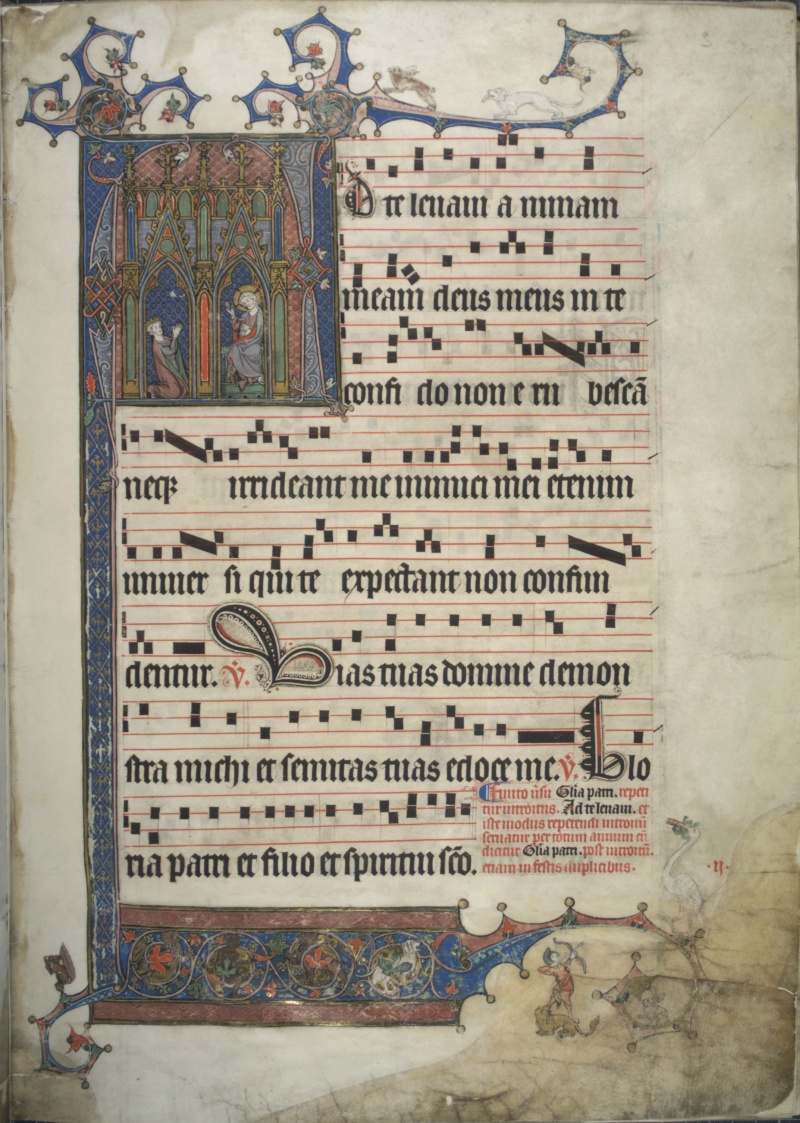 Ad te levavi animam
meam deus meus in te
confido non erubescā
neqꝫ irrideant me inimici mei etenim
universi qui te expectant non confun
dentur. v̇. Vias tuas domine demon
stra michi et semitas tuas edoce me. v̇. Glo
ria patri et filio et spiritui sc̄o.
Finito v̄su Gl̄ia patri. repeti
tur introitus. Ad te levavi. et
iste modus repetendi introitū
servatur per totum annum cū
dicitur Gl̄ia patri. post introitū.
etiam in festis duplicibus.
.ij.
3